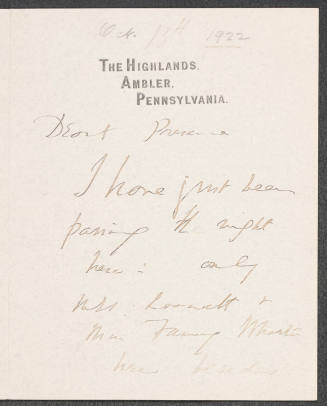 Oct. 17th 1922
THE HIGHLANDS,
AMBLER,
PENNSYLVANIA.
Dearest
I have just been
passing the night
here: only
&
Miss Fanny Wharton
here besides